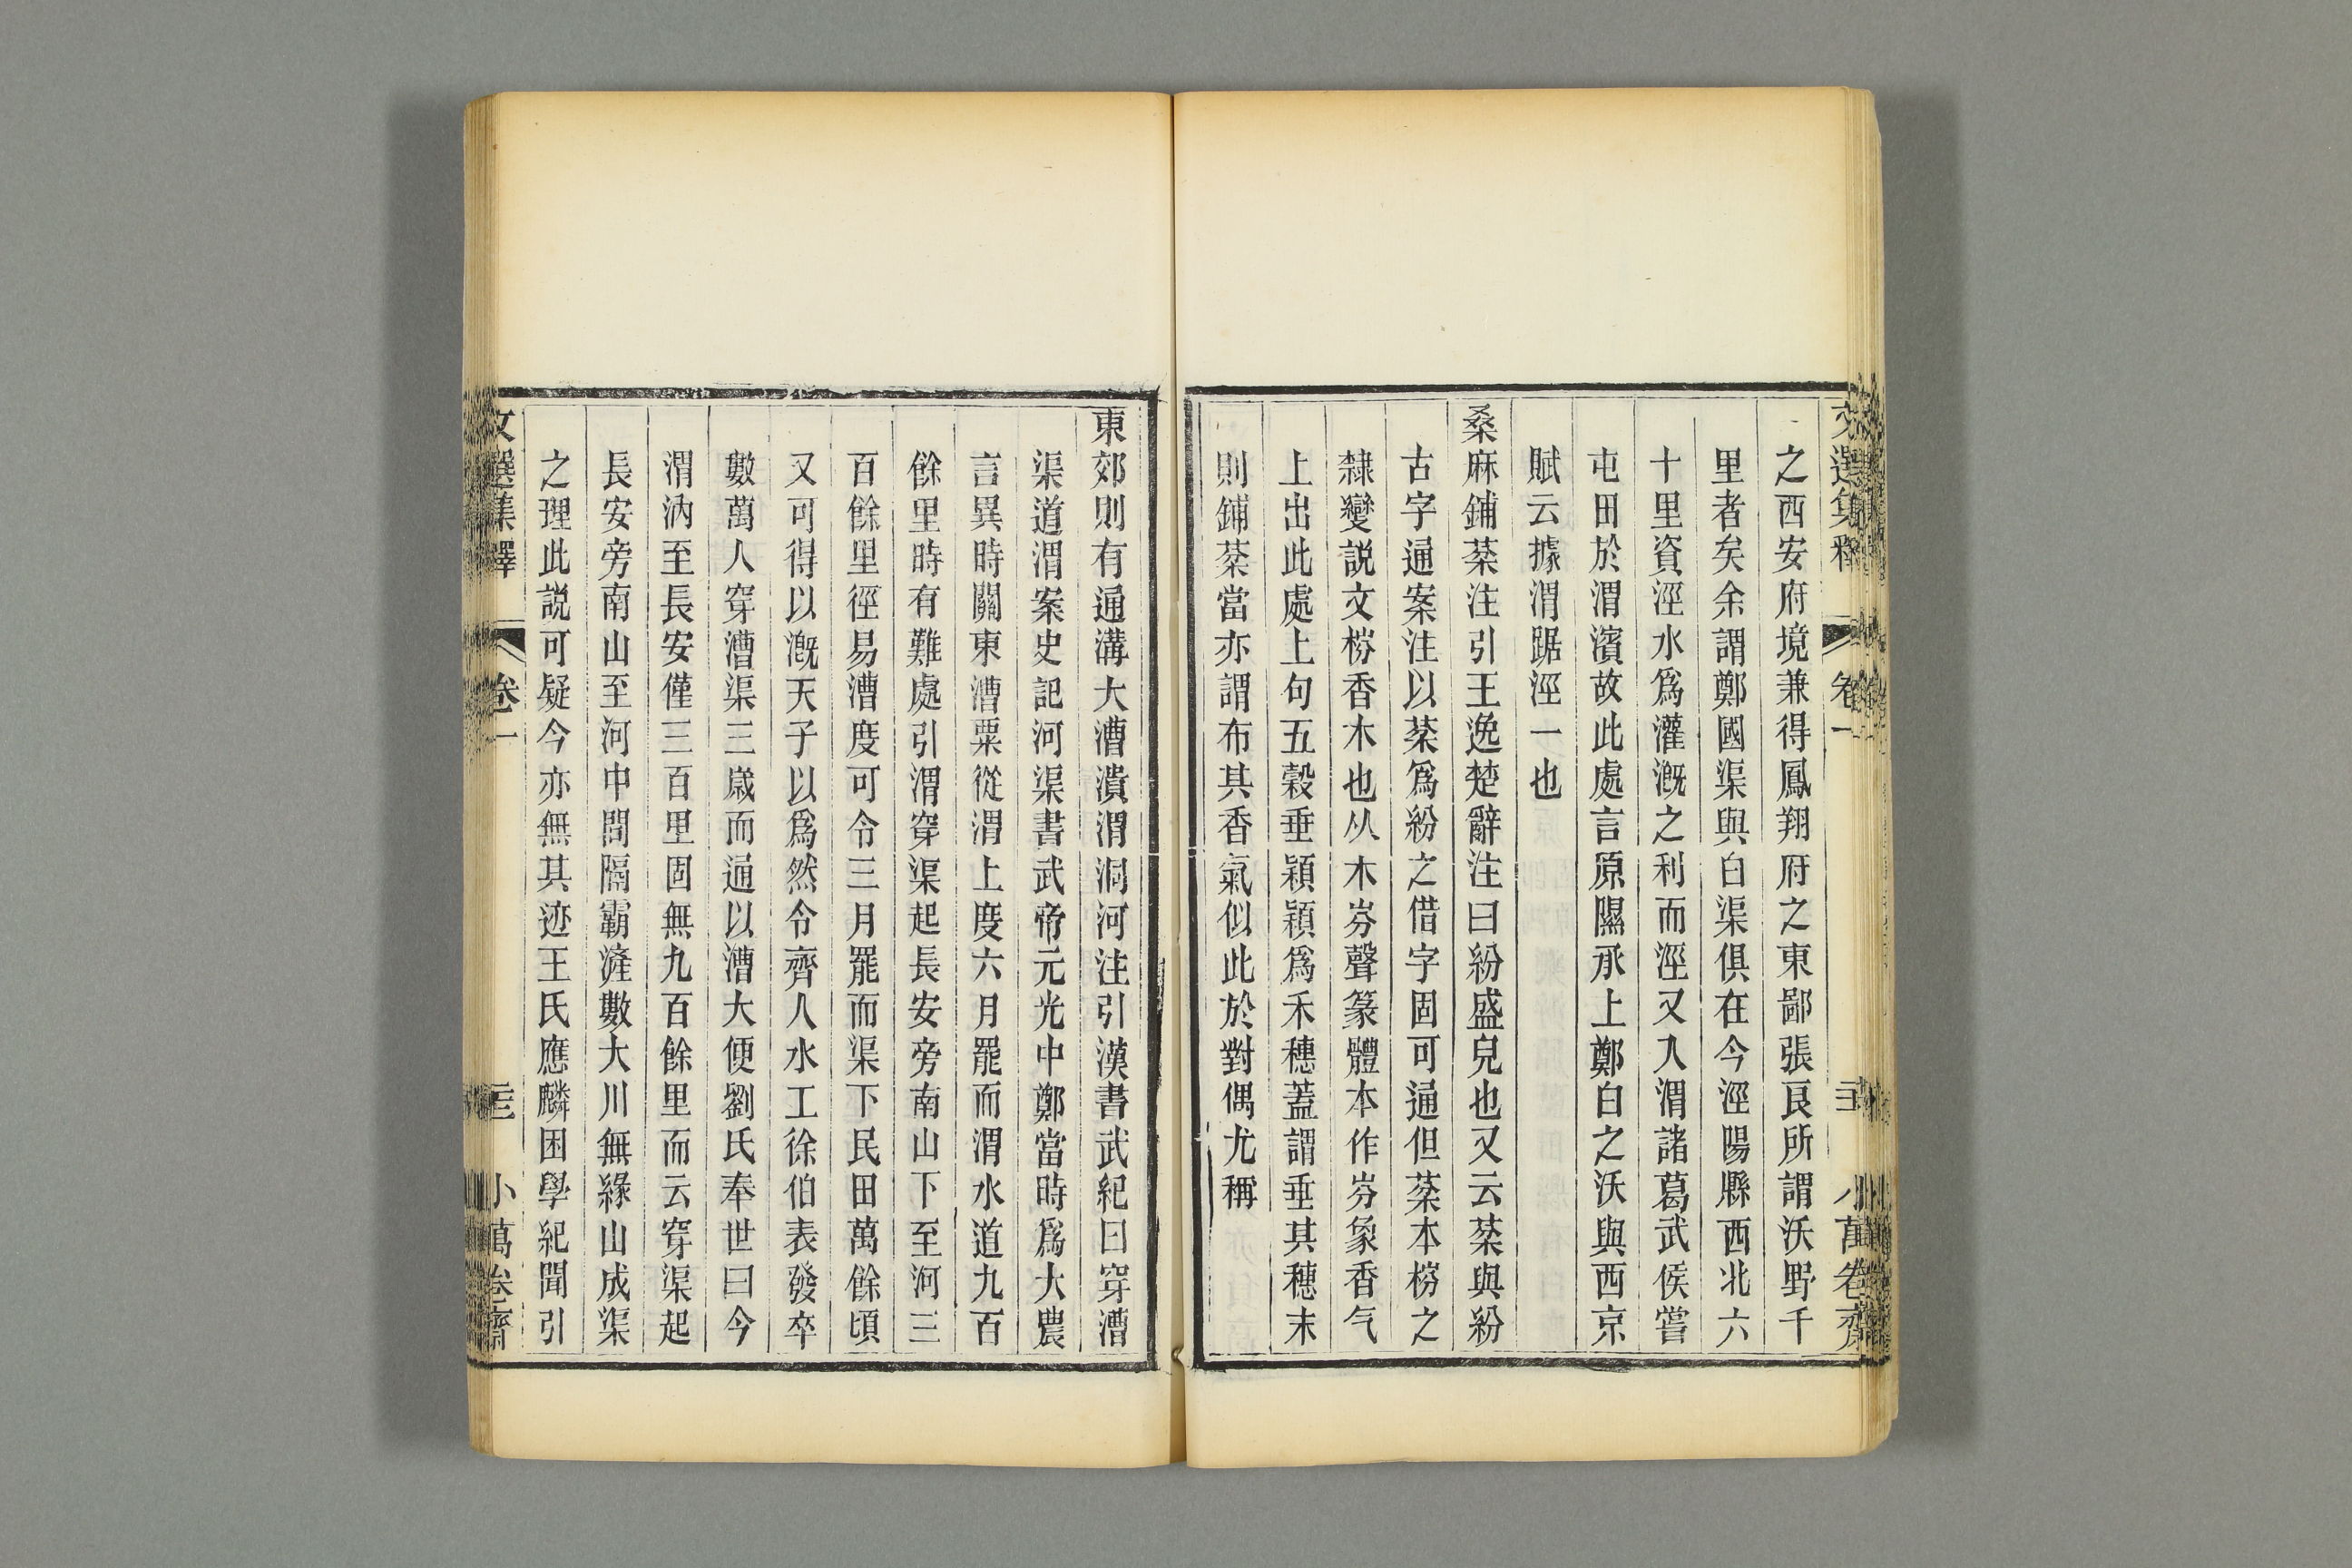 之西安府境兼得鳳翔府之東鄙張良所謂沃野千
里者矣余謂鄭國渠與白渠俱在今涇陽縣西北六
十里資涇水爲灌漑之利而涇又入渭諸葛武侯嘗
屯田於渭濱故此處言原隰承上鄭白之沃與西京
賦云據渭踞涇一也
桑麻鋪棻注引王逸楚辭注曰紛盛皃也又云棻與紛
古字通案注以棻爲紛之借字固可通但棻本㭊之
隸變説文㭊香木也从木岁聲篆體本作岁象香气
上出此處上句五穀垂穎穎爲禾穗蓋謂垂其穗末
則鋪棻當亦謂布其香氣似此於對偶尤稱
東郊則有通溝大漕潰渭洞河注引漢書武紀曰穿漕
渠道渭案史記河渠書武帝元光中鄭當時爲大農
言異時關東漕粟從渭上度六月罷而渭水道九百
餘里時有難處引渭穿渠起長安旁南山下至河三
百餘里徑易漕度可令三月罷而渠下民田萬餘頃
又可得以漑天子以爲然令齊人水工徐伯表發卒
數萬人穿漕渠三歲而通以漕大便劉氏奉世曰今
渭汭至長安僅三百里固無九百餘里而云穿渠起
長安旁南山至河中間隔霸滻數大川無緣山成渠
之理此説可疑今亦無其迹王氏應麟困學紀聞引
文選集釋 卷一 小萬卷齋